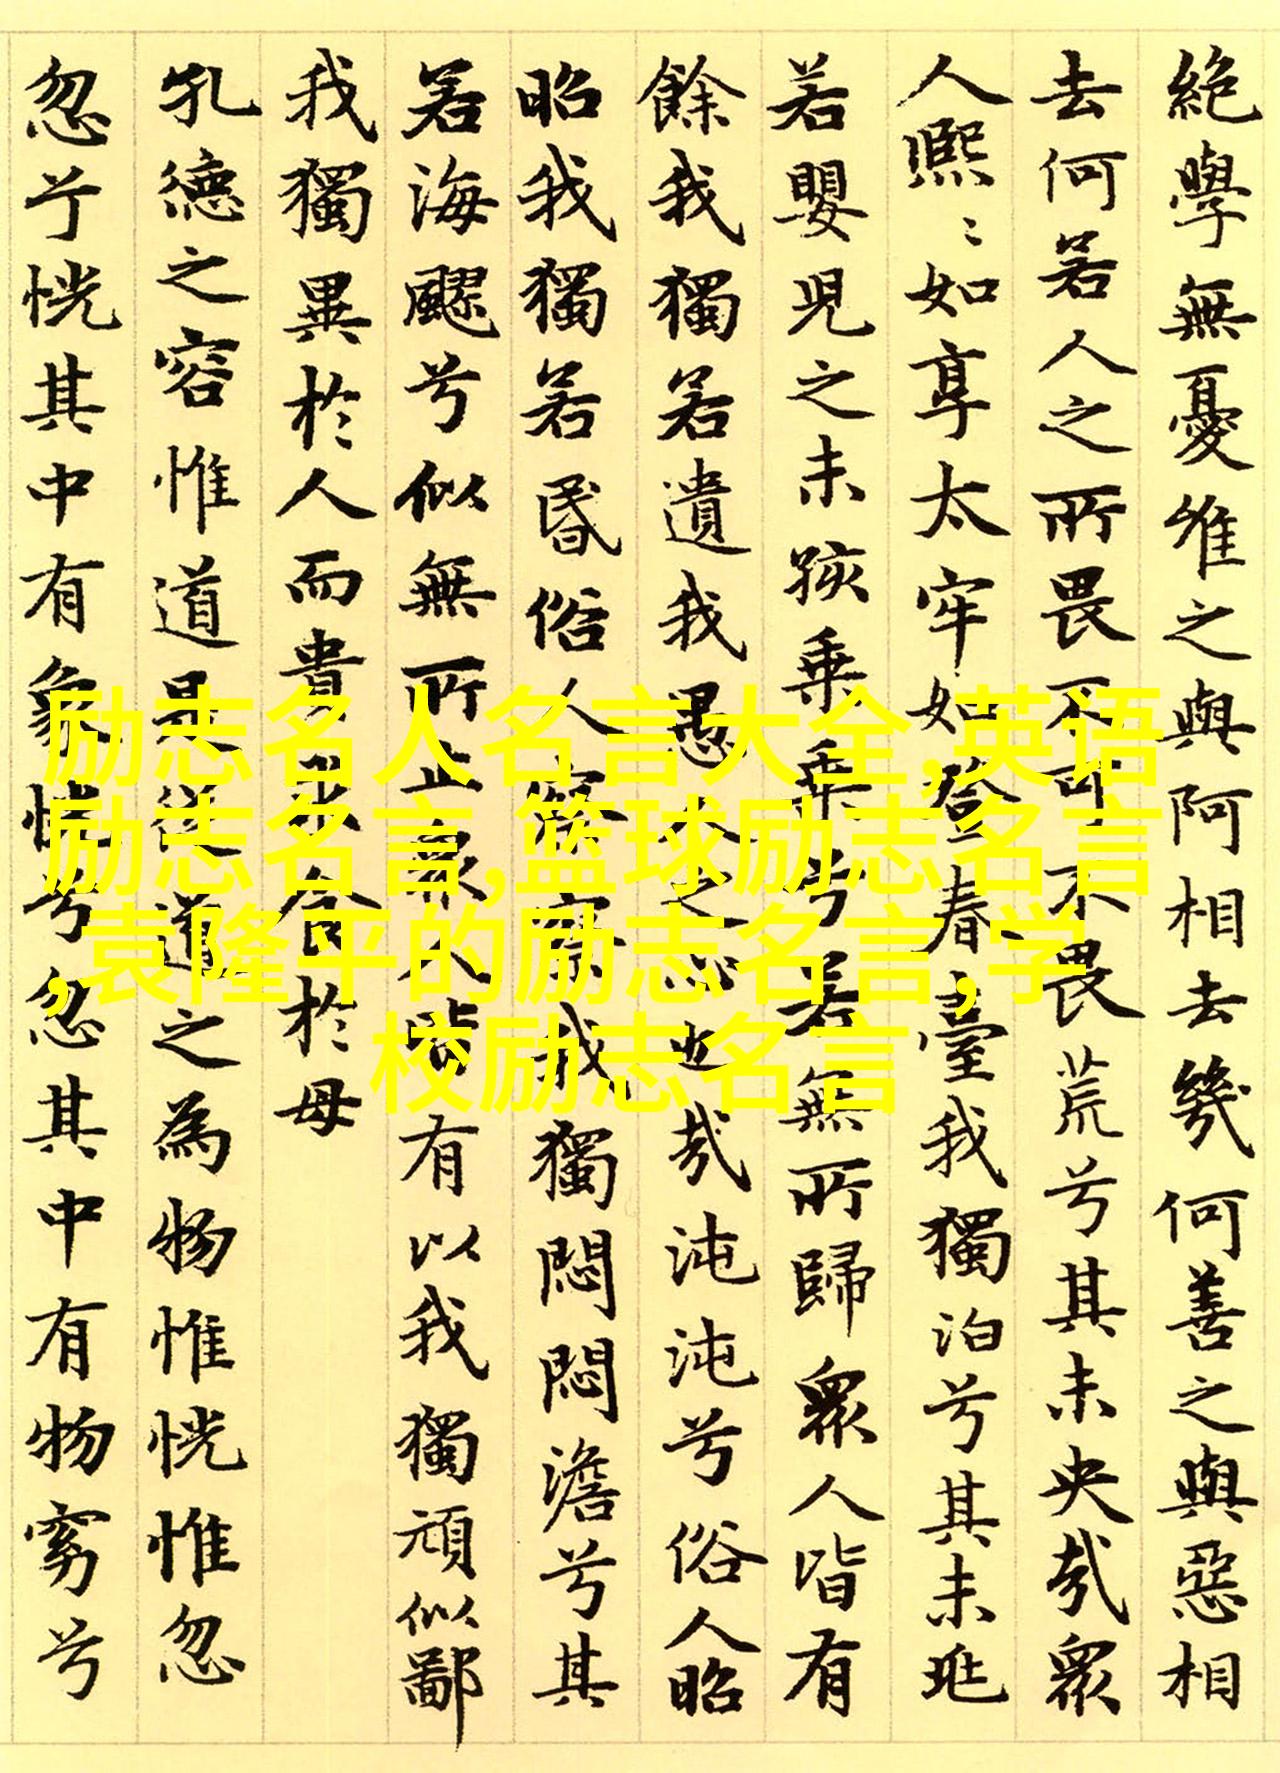 絶學無憂唯之與阿相去幾何善之與惡相
去何若人之所畏不可不畏荒兮其未央哉眾
人熙〻如享太牢如登春臺我獨泊兮其未兆
若嬰兒之未孩乗乗兮若無所歸眾人皆有
餘我獨若遺我愚人之心也哉沌沌兮俗人昭
昭我獨若昏俗人察察我獨悶悶澹兮其
若海飂兮似無所止眾人皆有以我獨頑似鄙
我獨異於人而貴求食於母
孔德之容惟道是從道之為物惟恍惟忽
忽兮恍其中有象恍兮忽其中有物窈兮
励志名人名言大全,英语
励志名言,篮球励志名言
,袁隆平的励志名言,学
校励志名言